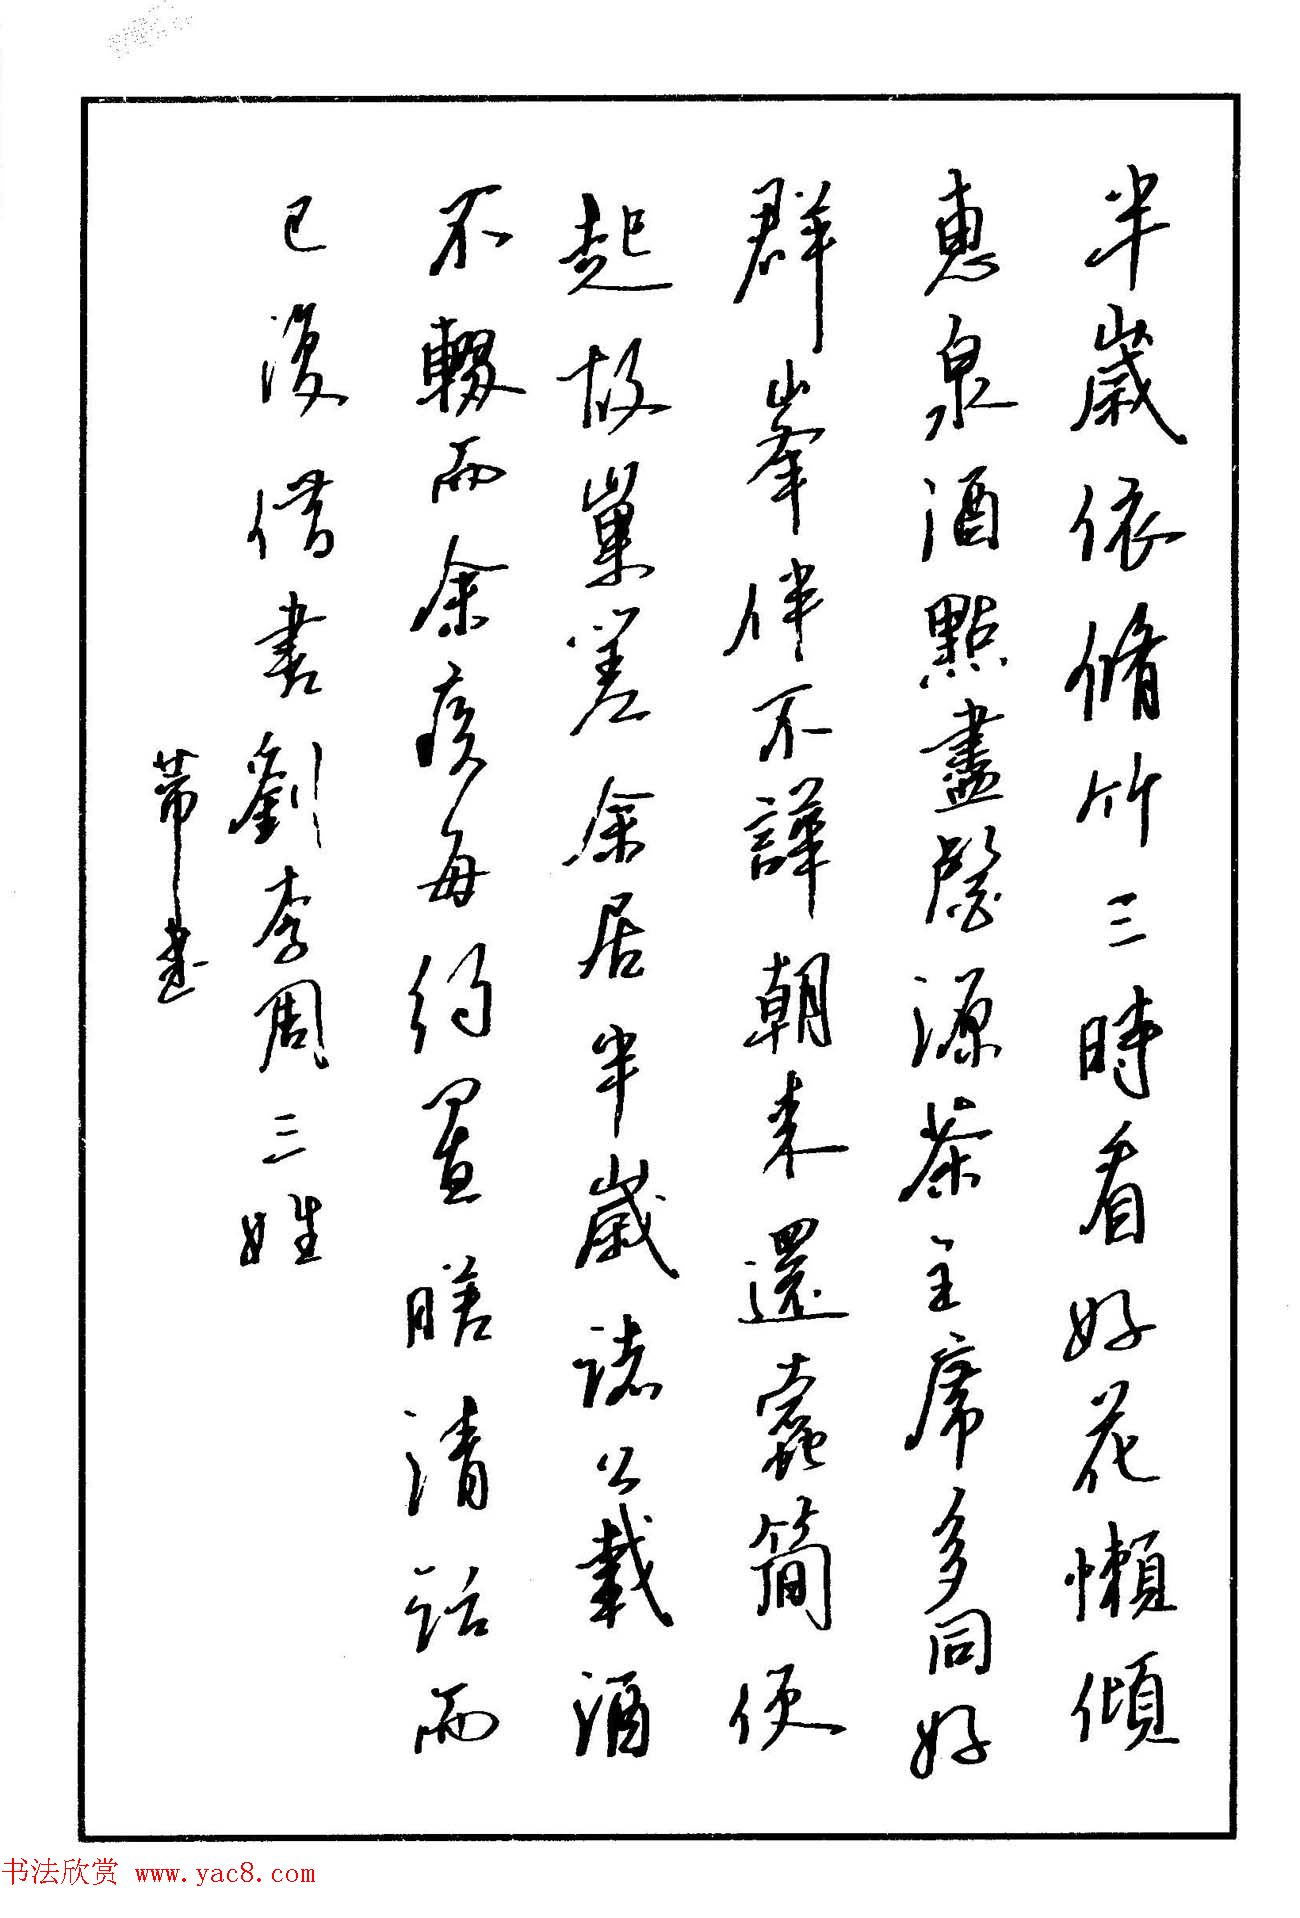 半歲依脩竹三時看好花懶傾
惠泉酒點盡壑源茶主席多同好
群峯伴不譁朝来還蠹簡便
起故巢嗟余居半歲諸公載酒
不輟而余疾每約置膳清話而
已復借書劉李周三姓
芾書
书法欣赏 www.yac8.com